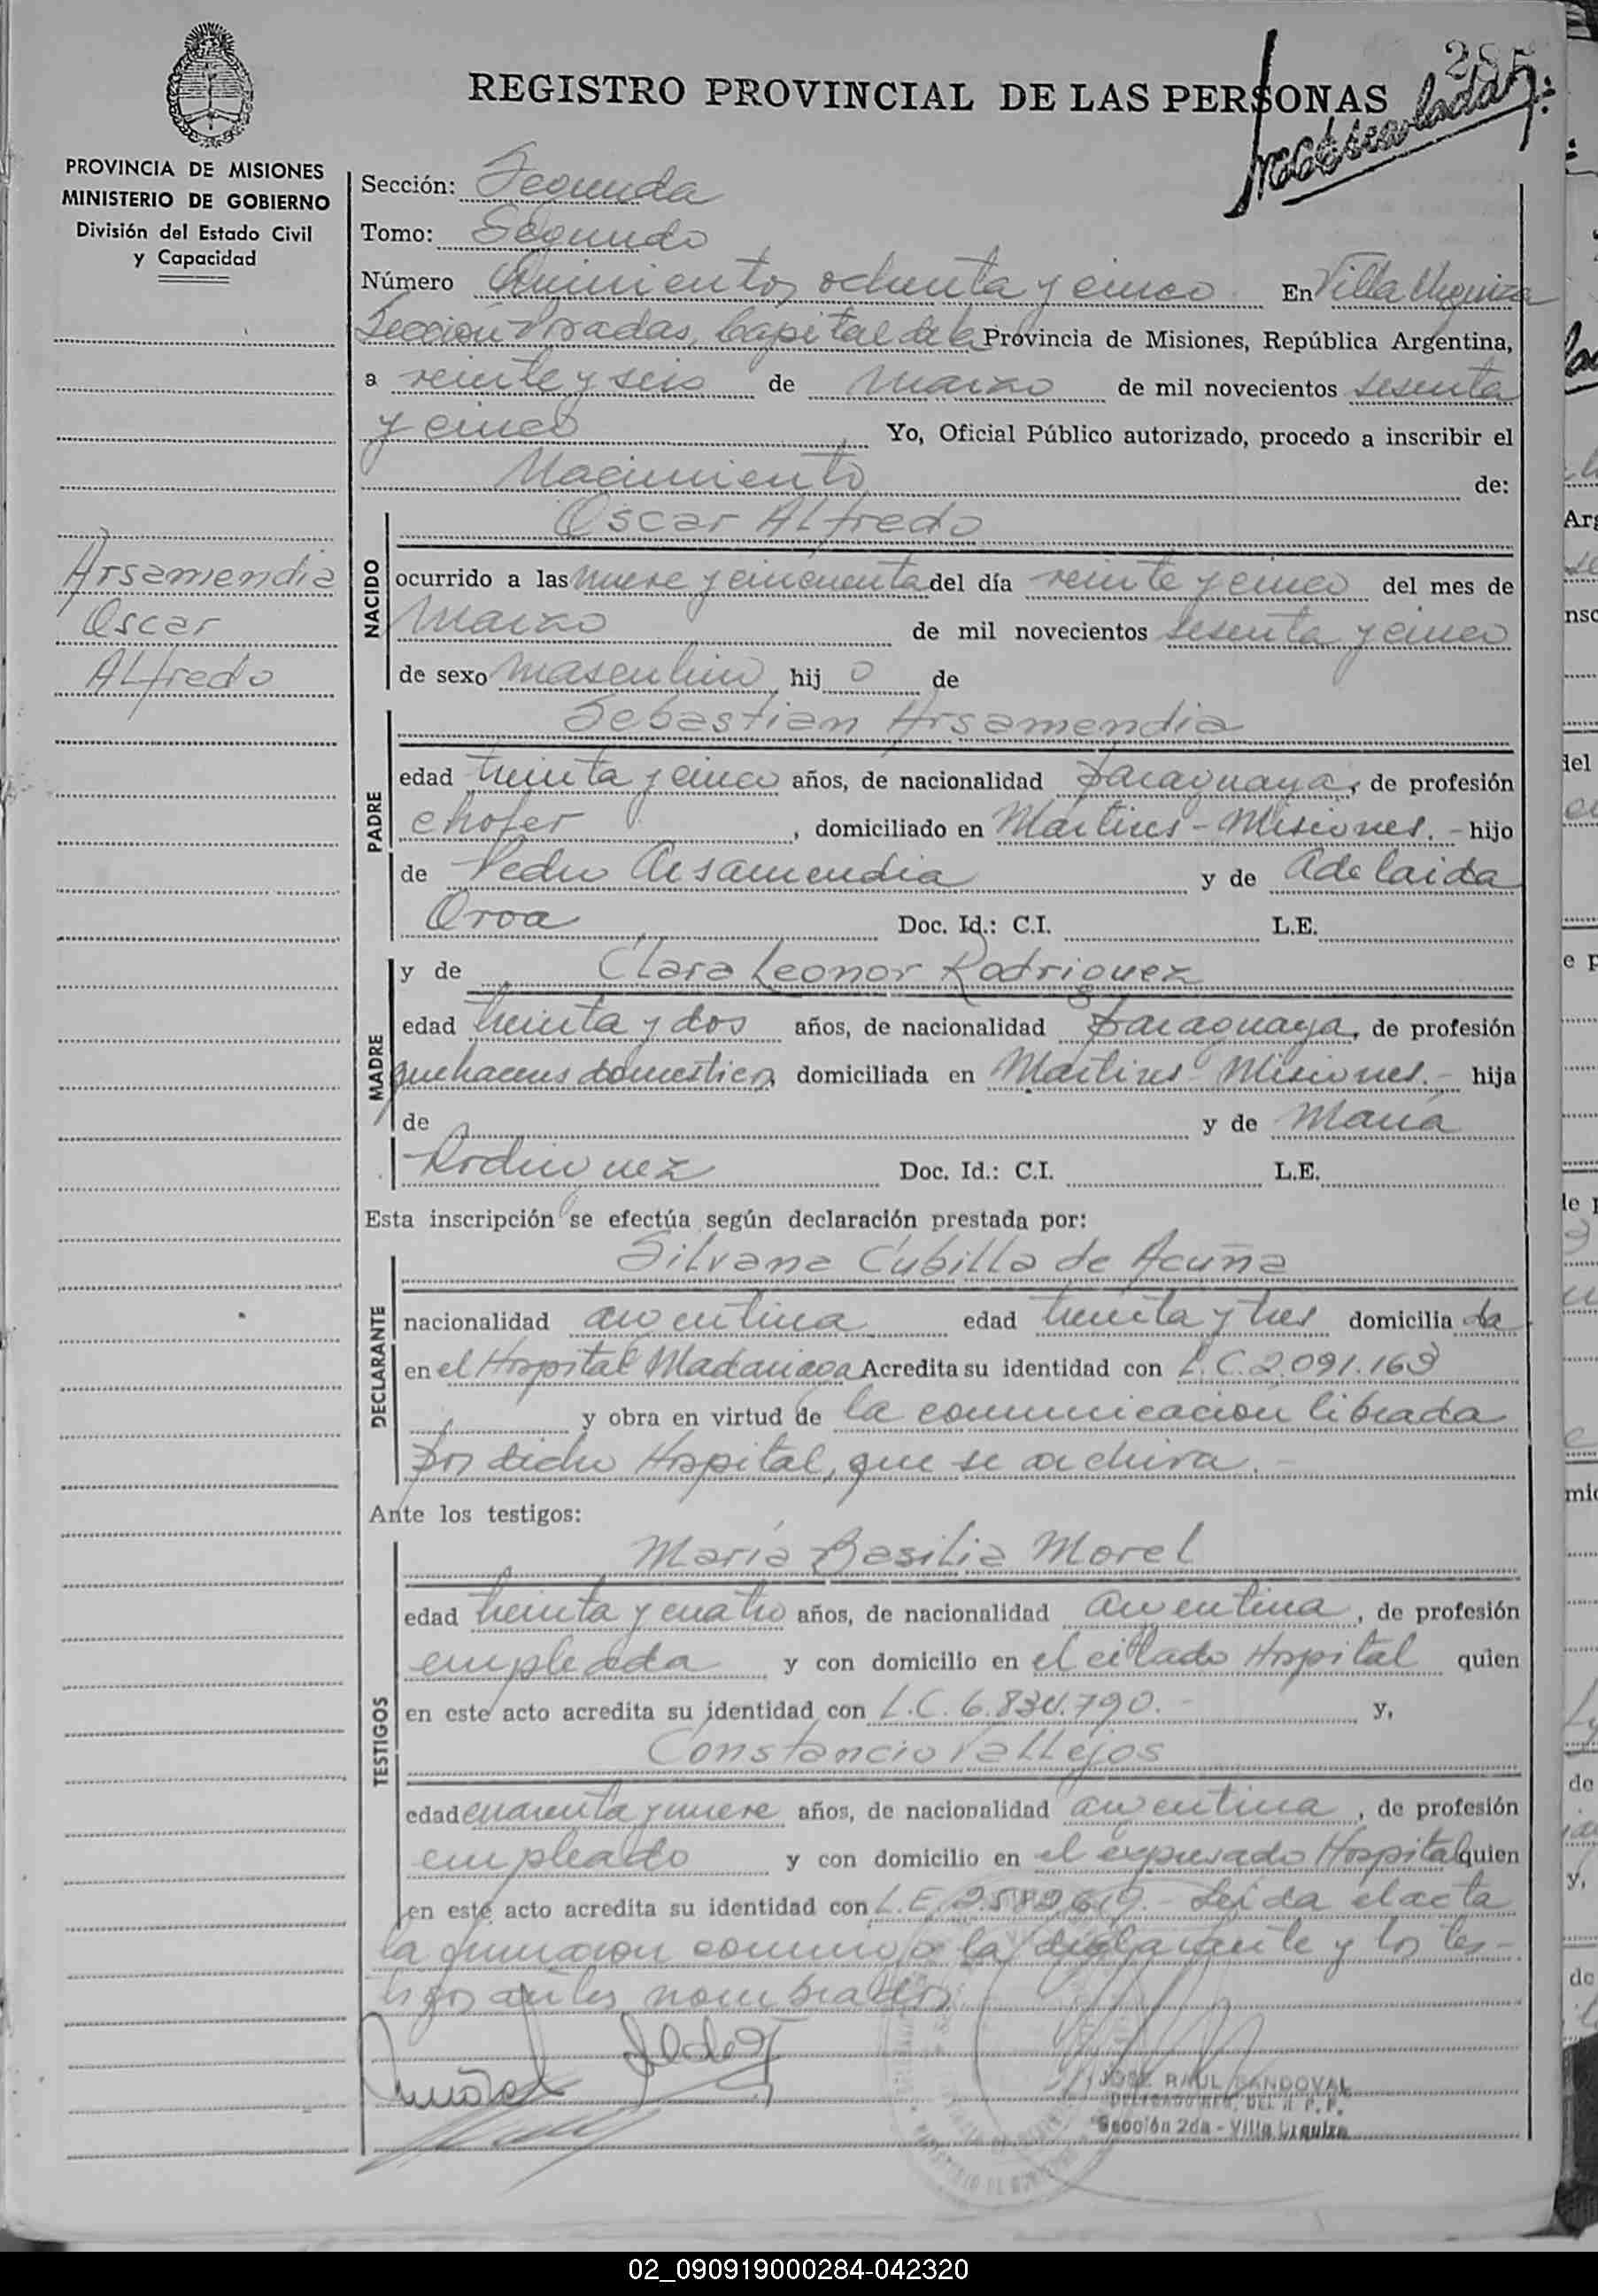 285
REGISTRO PROVINCIAL DE LAS PERSONAS
PROVINCIA DE MISIONES
MINISTERIO DE GOBIERNO
División del Estado Civil
y Capacidad
Sección: Segunda
Tomo: Segundo
Número Quinientos ochenta y cinco En Villa Urquiza
Sección Posadas, Capital de la Provincia de Misiones, República Argentina,
a veinte y seis de Marzo de mil novecientos sesenta
y cinco Yo, Oficial Público autorizado, procedo a inscribir el
Nacimiento de:
Arsamendia
Oscar
ALfredo
NACIDO
Oscar ALfredo
ocurrido a las nueve y cincuenta del día veinte y cinco del mes de
Marzo de mil novecientos sesenta y cinco
de sexo masculino hij o de
PADRE
Sebastian Arsamendia
edad treinta y cinco años, de nacionalidad paraguaya, de profesión
chofer, domiciliado en Martires - Misiones. - hijo
de Pedro Arsamendia y de Adelaida
Oroa Doc. Id.: C.I. L.E.
MADRE
y de Clara Leonor Rodriguez
edad treinta y dos años, de nacionalidad paraguaya, de profesión
quehaceres domesticos domiciliada en Martires Misiones. - hija
de y de María
Rodriguez Doc. Id.: C.I. L.E.
Esta inscripción se efectúa según declaración prestada por:
DECLARANTE
Silvana Cubilla de Acuña
nacionalidad argentina edad treinta y tres domicilia da
en el Hospital Madariaga Acredita su identidad con L.C. 2.091.163
y obra en virtud de la comunicación librada
por dicho Hospital, que se archiva. -
Ante los testigos:
TESTIGOS
María Basilia Morel
edad treinta y cuatro años, de nacionalidad argentina, de profesión
empleada y con domicilio en el citado Hospital quien
en este acto acredita su identidad con L.C. 6.830.790. - y,
Constancio Vallejos
edad cuarenta y nueve años, de nacionalidad argentina, de profesión
empleado y con domicilio en el expresado Hospital quien
en este acto acredita su identidad con L.E. 2.582.619. - Leida el acta
la firmaron conmigo la declarante y los tes-
tigos antes nombrados
JOSE RAUL SANDOVAL
DELEGADO REG. DEL R. P. P.
Sección 2da - Villa Urquiza
02_090919000284-042320